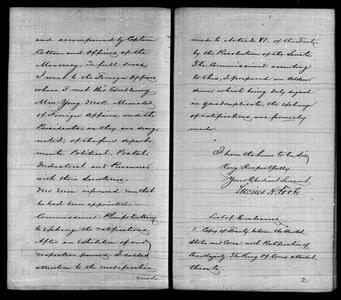 and accompanied by Captain
Cotton and Officers, of the
Monocacy, in full dress,
I went to the Foreign Office,
where I met His Excellency
Min Yong Mok Minister
of Foreign Affairs and the
Presidents as they are desig-
nated, of the four depart-
ments Political, Postal
Industrial and Revenue
with their Secretaries.
Mr Min informed me that
he had been appointed
Commissioner Plenipotentiary
to exchange the ratifications,
After an exhibition of our
respective powers, I called
attention to the modification
made
made to Article VI. of the Treaty
by the Resolution of the Senate.
The Commissioner assenting
to this, I prepared an Adden-
dum which being duly signed
in quadruplicate, the exchange
of ratifications, was formally
made.
I have the honor to be, Sir,
Very Respectfully
Your Obedient Servant,
Lucius H. Foote
List of Enclosures
1. Copy of Treaty between the United
States and Corea with Ratification of
His Majesty The King of Corea attached
thereto
2